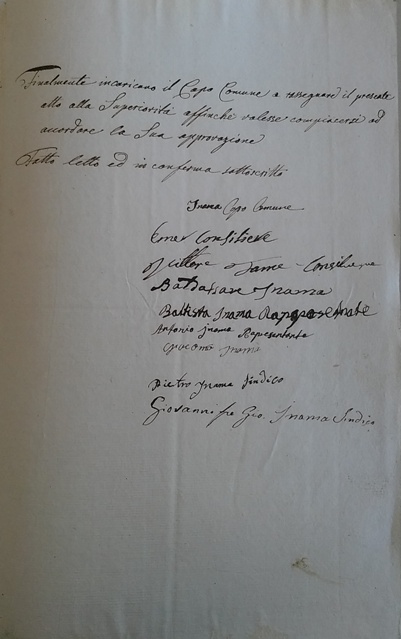 Finalmente incaricano il Capo Comune a rassegnare il presente
atto alla Superiorità affinche volesse compiacersi ad
accordare la Sua approvazione
Fatto letto ed in conferma sottoscritto
Inama Capo Comune
Jname
Baldassare Inama
Battista Inama
Antonio Jnama Representante
Jnama
Pietro Jnama Sindico
Giovanni fu Gio. Inama Sindico